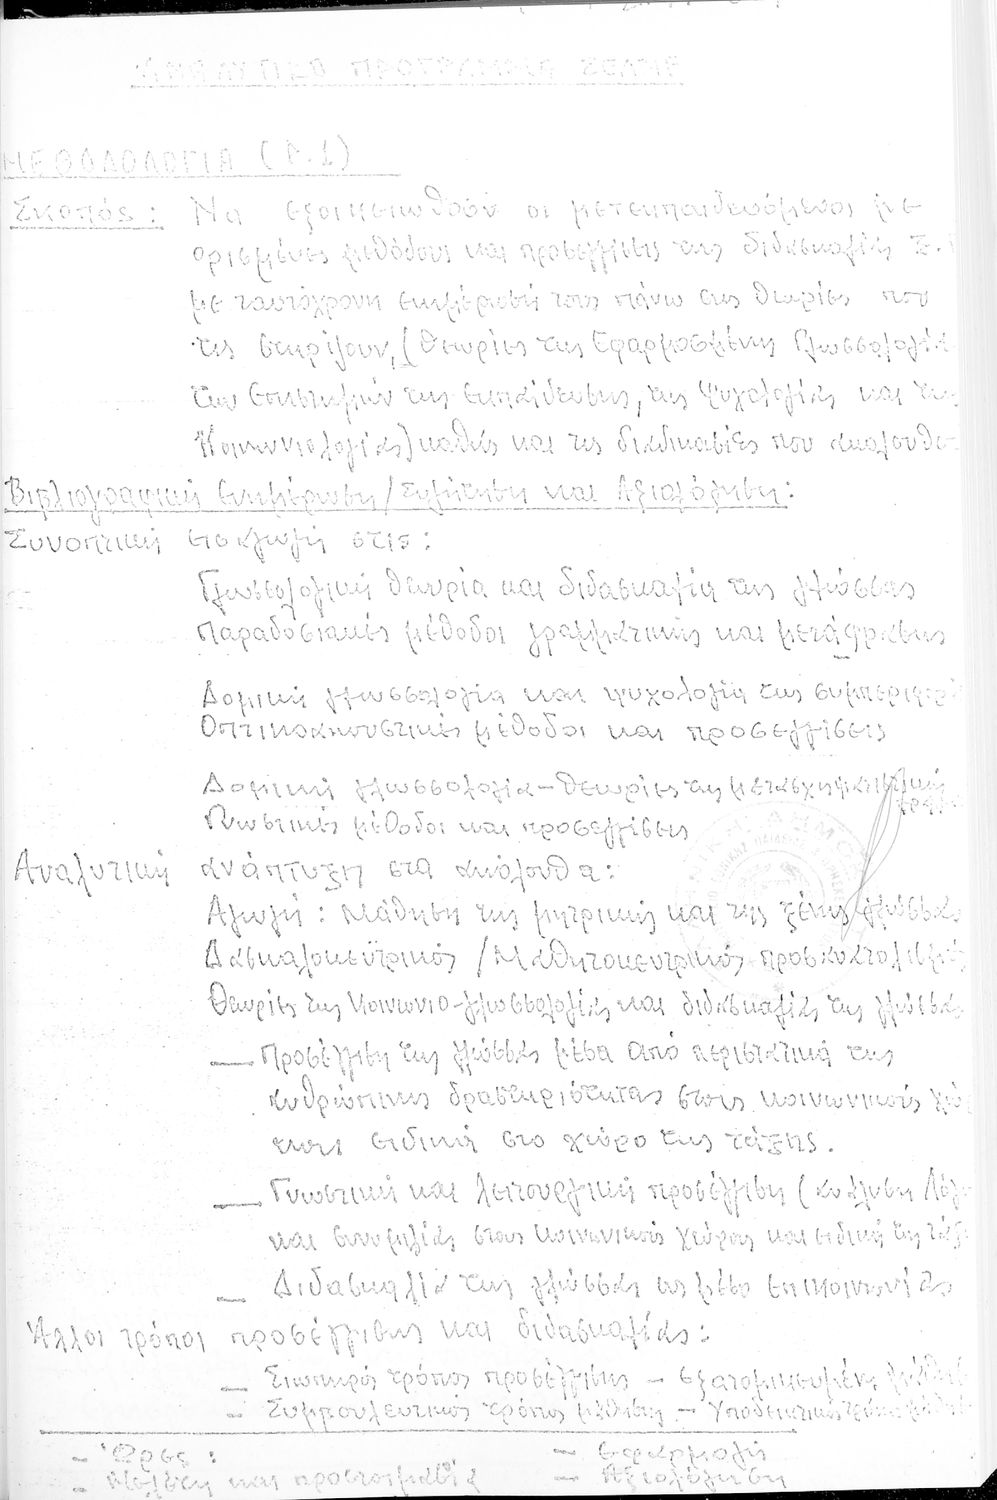 ΑΝΑΛΥΤΙΚΟ ΠΡΟΓΡΑΜΜΑ ΣΕΛΜΕ
ΜΕΘΟΔΟΛΟΓΙΑ (Γ.1)
Σκοπός: Να εξοικειωθούν οι μετεκπαιδευόμενοι με
ορισμένες μεθόδους και προσεγγίσεις της διδασκαλίας Ξ.
με ταυτόχρονη ενημέρωσή τους πάνω στις θεωρίες που
τις στηρίζουν, (θεωρίες της Εφαρμοσμένης Γλωσσολογία
των Επιστημών της Εκπαίδευσης, της Ψυχολογίας και της
Κοινωνιολογίας) καθώς και τις διαδικασίες που ακολουθε
Βιβλιογραφική Ενημέρωση/Συζήτηση και Αξιολόγηση:
Συνοπτική εισαγωγή στις:
Γλωσσολογική θεωρία και διδασκαλία της γλώσσας
Παραδοσιακές μέθοδοι γραμματικής και μετάφρασης
Δομική γλωσσολογία και ψυχολογία της συμπεριφορ
Οπτικοακουστικές μέθοδοι και προσεγγίσεις
Δομική γλωσσολογία - θεωρίες της μετασχηματιστικής
Γνωστικές μέθοδοι και προσεγγίσεις
Αναλυτική ανάπτυξη στα ακόλουθα:
Αγωγή: Μάθηση της μητρικής και της ξένης γλώσσας
Δασκαλοκεντρικός/Μαθητοκεντρικός προσανατολισμός
Θεωρίες της Κοινωνιο-γλωσσολογίας και διδασκαλίας της γλώσσας
— Προσέγγιση της γλώσσας μέσα από περιστατικά της
ανθρώπινης δραστηριότητας στους κοινωνικούς χώρ
τους ειδικά στο χώρο της τάξης.
— Γνωστική και λειτουργική προσέγγιση (ανάλυση λόγο
και συνομιλίας στους κοινωνικούς χώρους και ειδικά της τάξη
— Διδασκαλία της γλώσσας ως μέσο επικοινωνίας
Άλλοι τρόποι προσέγγισης και διδασκαλίας:
— Σιωπηρός τρόπος προσέγγισης - εξατομικευμένη μάθη
- Συμβουλευτικός τρόπος μάθησης - Υποδεικτικός τρόπος
- Ώρες: - Εφαρμογή
- Μελέτη και προετοιμασία - Αξιολόγηση